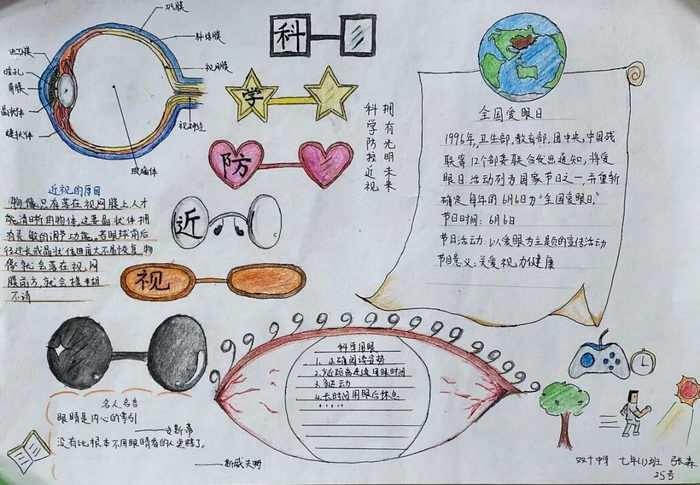 巩膜
脉络膜
视网膜
虹膜
瞳孔
角膜
晶状体
睫状体
视神经
玻璃体
科
学
防
近
视
拥有光明未来
科学防控近视
近视的原因
物像只有落在视网膜上人才
能清晰明物体,这要晶状体拥
有灵敏的调节功能。若眼球前后
径过长或晶状体凸度太大不能恢复,物
像就会落在视网
膜前方,就会模糊
不清
全国爱眼日
1996年,卫生部,教育部,团中央,中国残
联等12个部委联合发出通知,将爱
眼日活动列为国家节日之一,并重新
确定每年的6月6日为“全国爱眼日”
节日时间:6月6日
节日活动:以爱眼为主题的宣传活动
节日意义:关爱视力健康
科学用眼
1. 正确阅读姿势
2. 减少近距离连续用眼时间
3. 多运动
4. 长时间用眼后休息
名人名言
眼睛是内心的索引
——达斯蒂
没有比根本不用眼睛看的人更瞎了。
——斯威夫特
双十中学 七年(1)班 张森
25号